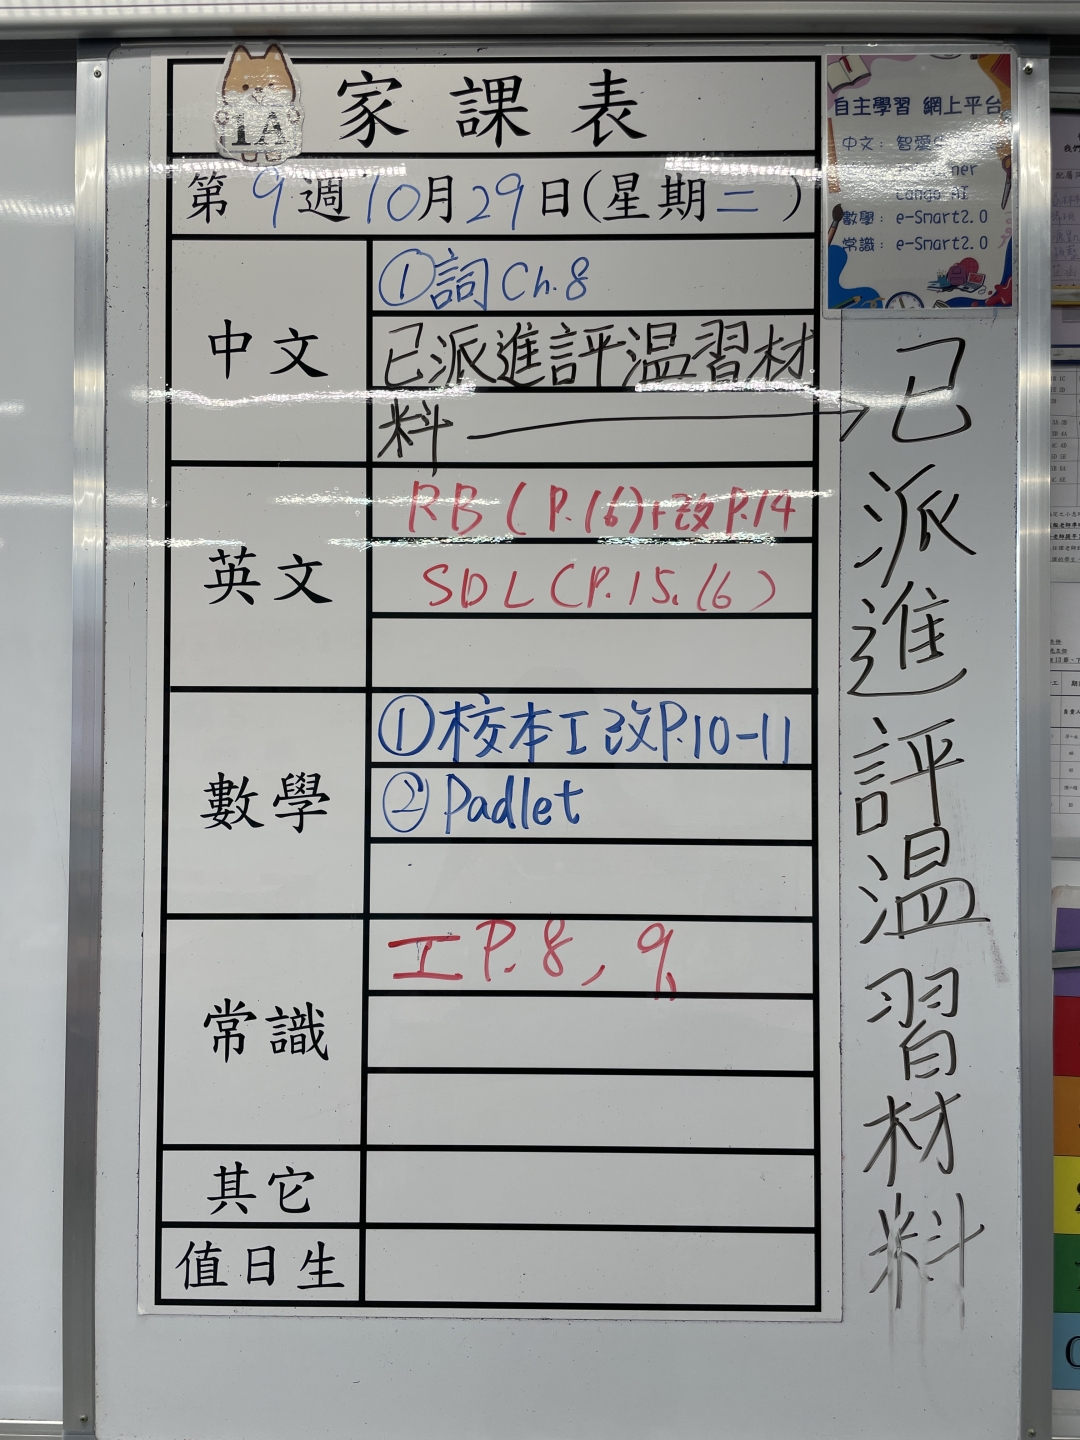 1A
家課表
第9週10月29日(星期二)
中文
①詞Ch.8
已派進評温習材
料
英文
RB(P.16)+改P.14
SDL(P.15.16)
數學
①校本工改P.10-11
②Padlet
常識
工P.8,9
其它
值日生
自主學習 網上平台
中文: 智愛
數學: e-Smart2.0
常識: e-Smart2.0
已派進評温習材料